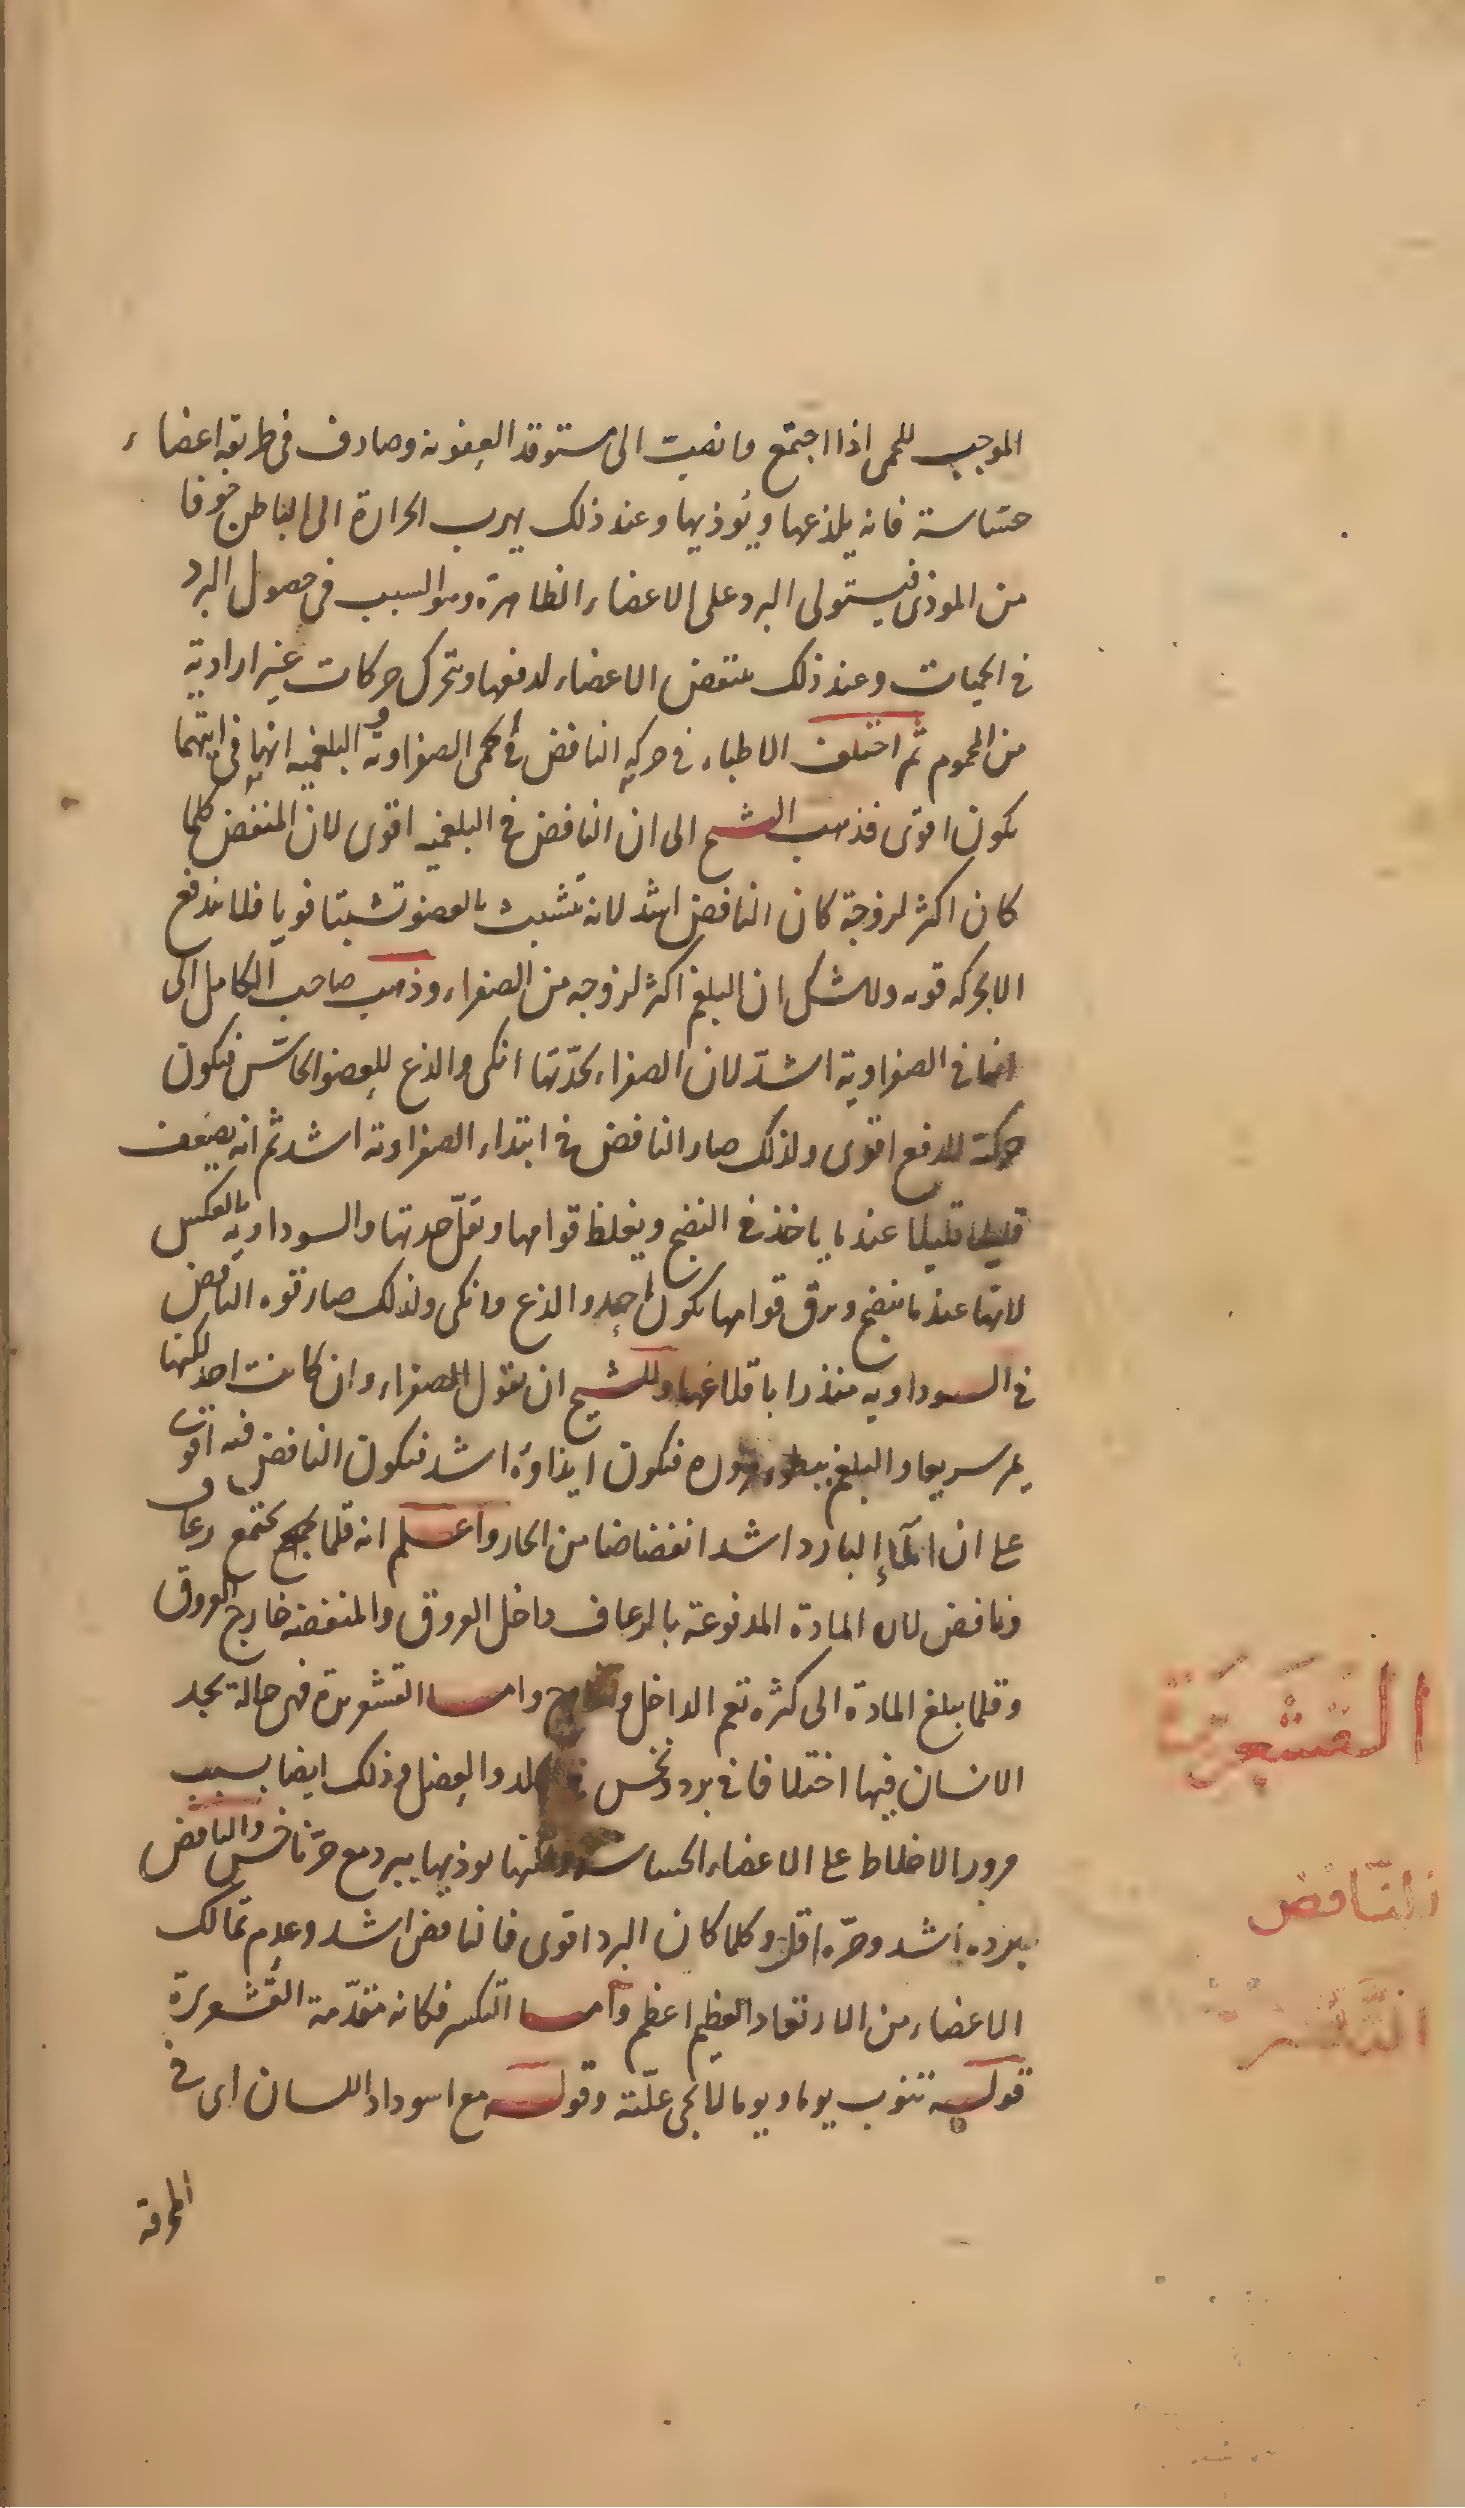 الموجب للحمى اذا اجتمع وانصبت الى مستوقد العفونه وصادف فى طريقه اعضاء
حساسة فانه يلذعها ويؤذيها وعند ذلك يهرب الحرارة الى الباطن خوفا
من الموذى فيستولى البرد على الاعضاء الظاهرة وهو السبب فى حصول البرد
فى الحميات وعند ذلك ينتفض الاعضاء لدفعها ويتحرك حركات غير ارادية
من المحموم ثم اختلف الاطباء فى حركه النافض فى الحمى الصفراويه والبلغميه انها فى ايتهما
يكون اقوى فذهب الشيخ الى ان النافض فى البلغميه اقوى لان المنتفض كلما
كان اكثر لزوجة كان النافض اشد لانه يتشبث بالعضو تشبثا قويا فلا يندفع
الا بحركه قويه ولا شك ان البلغم اكثر لزوجه من الصفراء وذهب صاحب الكامل الى
انها فى الصفراوية اشدّ لان الصفراء بحدّتها انكى والذع للعضو الحاسّ فيكون
حركة الدفع اقوى ولذلك صار النافض فى ابتداء الصفراوية اشد ثم انه يضعف
قليلا قليلا عند ما ياخذ فى النضج ويغلظ قوامها وتقلّ حدتها والسوداويه بالعكس
لانها عند ما ينضج ويرق قوامها يكون احد والذع وانكى ولذلك صار قوه النافض
فى السوداويه منذرا باقلاعها وللشيخ ان يقول الصفراء وان كانت احد لكنها
يمر سريعا والبلغم ببطوء مروره فيكون ايذاؤه اشد فيكون النافض فيه اقوى
على ان الماء البارد اشد انفضاضا من الحار واعلم انه قلما يجتمع رعاف
ونافض لان المادة المدفوعة بالرعاف داخل العروق والمنفضه خارج العروق
وقلما يبلغ المادة الى كثره تعم الداخل والخارج واما القشعريرة فهى حالة يجد
الانسان فيها اختلافا فى برد ونخس فى الجلد والعضل وذلك ايضا بسبب
مرور الاخلاط على الاعضاء الحساسة ولكنها يوذيها ببرد مع حرّ ناخس والنافض
برده اشد وحرّه اقل وكلما كان البرد اقوى فالنافض اشد وعدم تمالك
الاعضاء من الارتعاد العظيم اعظم واما التكسر فكانه مقدّمة القشعريرة
قوله تنوب يوما ويوما لا يجى علّته وقوله مع اسوداد اللسان اى فى
المحرقة
القشعريرة
النافض
التكسر